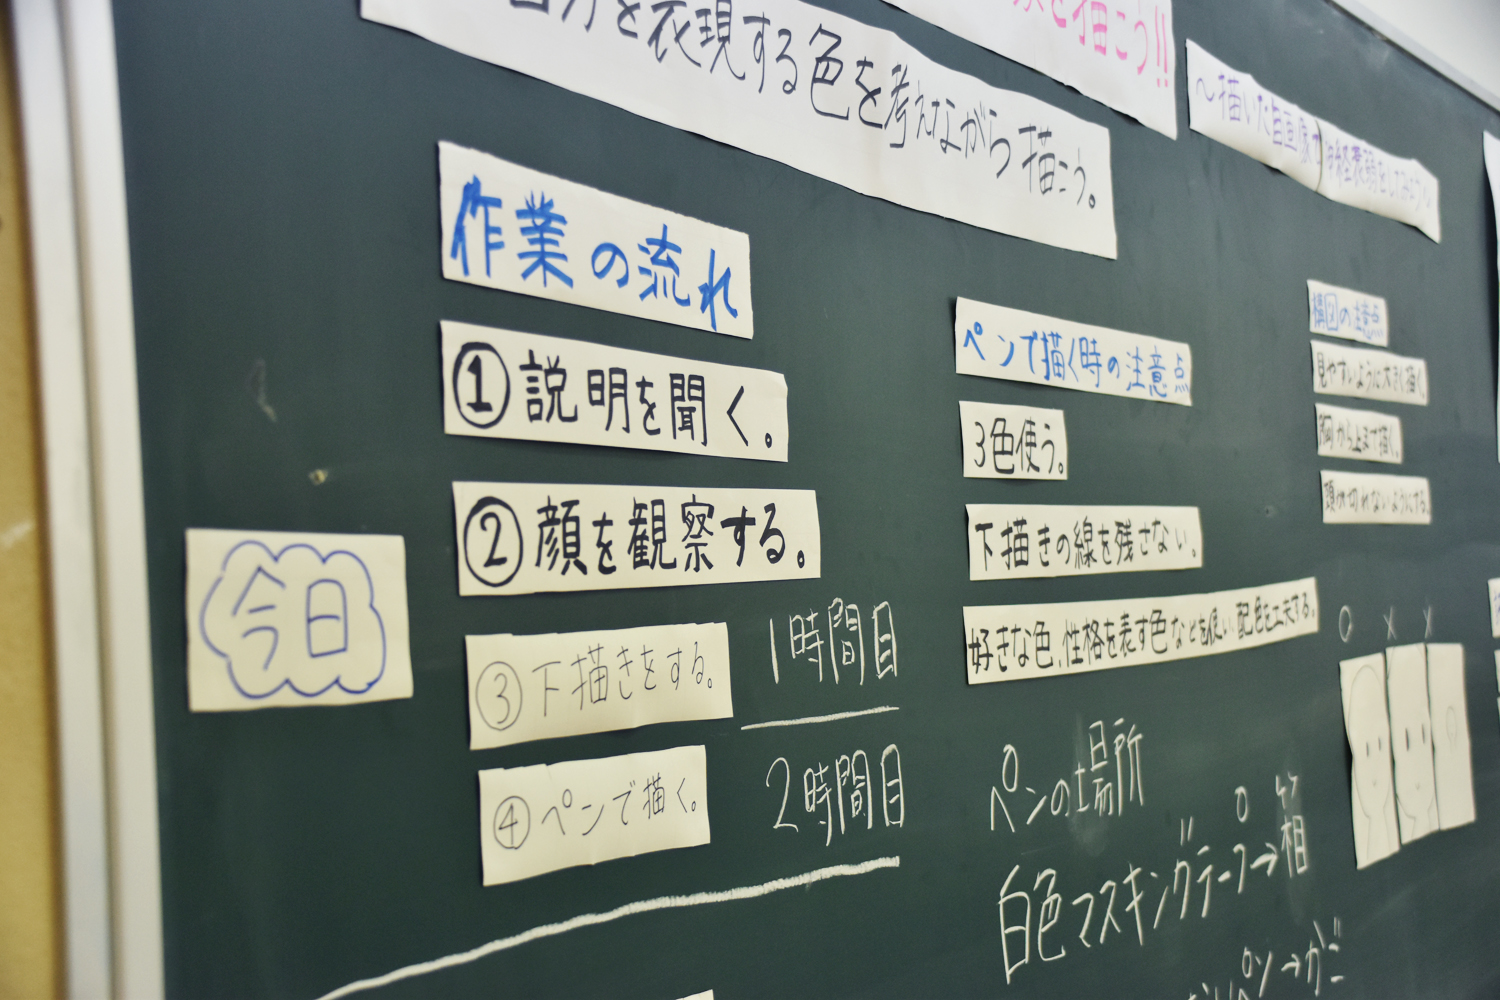 を表現する色を考えながら描こう。
を描こう!!
〜描いた自画像で
作業の流れ
①説明を聞く。
②顔を観察する。
今日
③下描きをする。
④ペンで描く。
1時間目
2時間目
ペンで描く時の注意点
3色使う。
下描きの線を残さない。
好きな色、性格を表す色などを使い配色を工夫する。
ペンの場所
白色マスキングテープ→箱
ペン→かご
構図の注意点
見やすいように大きく描く
胸から上まで描く。
頭が切れないようにする。
○ × ×